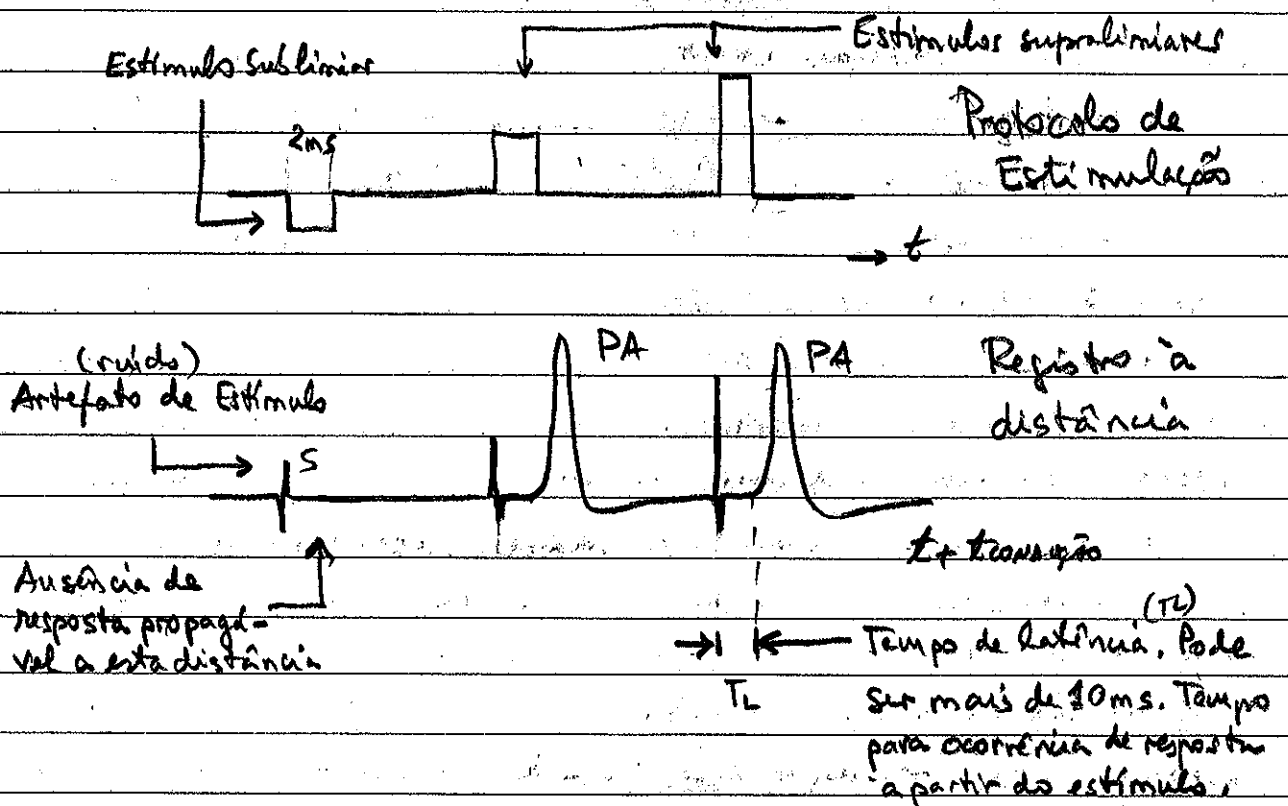 Estímulos supralimiares
Estímulo Sublimiar
2ms
Protocolo de
Estimulação
t
(ruído)
Artefato de Estímulo
S
PA
PA
Registro à
distância
t + tcondução
Ausência de
resposta propagá-
vel a esta distância
(TL)
Tempo de latência. Pode
TL
ser mais de 10ms. Tempo
para ocorrência de resposta
a partir do estímulo.